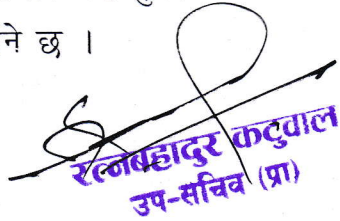 ने छ ।
रत्नबहादुर कटुवाल
उप-सचिव (प्रा)